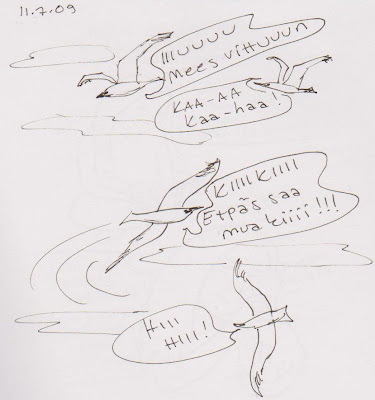 11.7.09
IIIUUUU
Mees vittuuun
KAA-AA
Kaa-haa!
KIIIIKIIII
Etpäs saa
mua kiiii!!!
HIII
HIII!